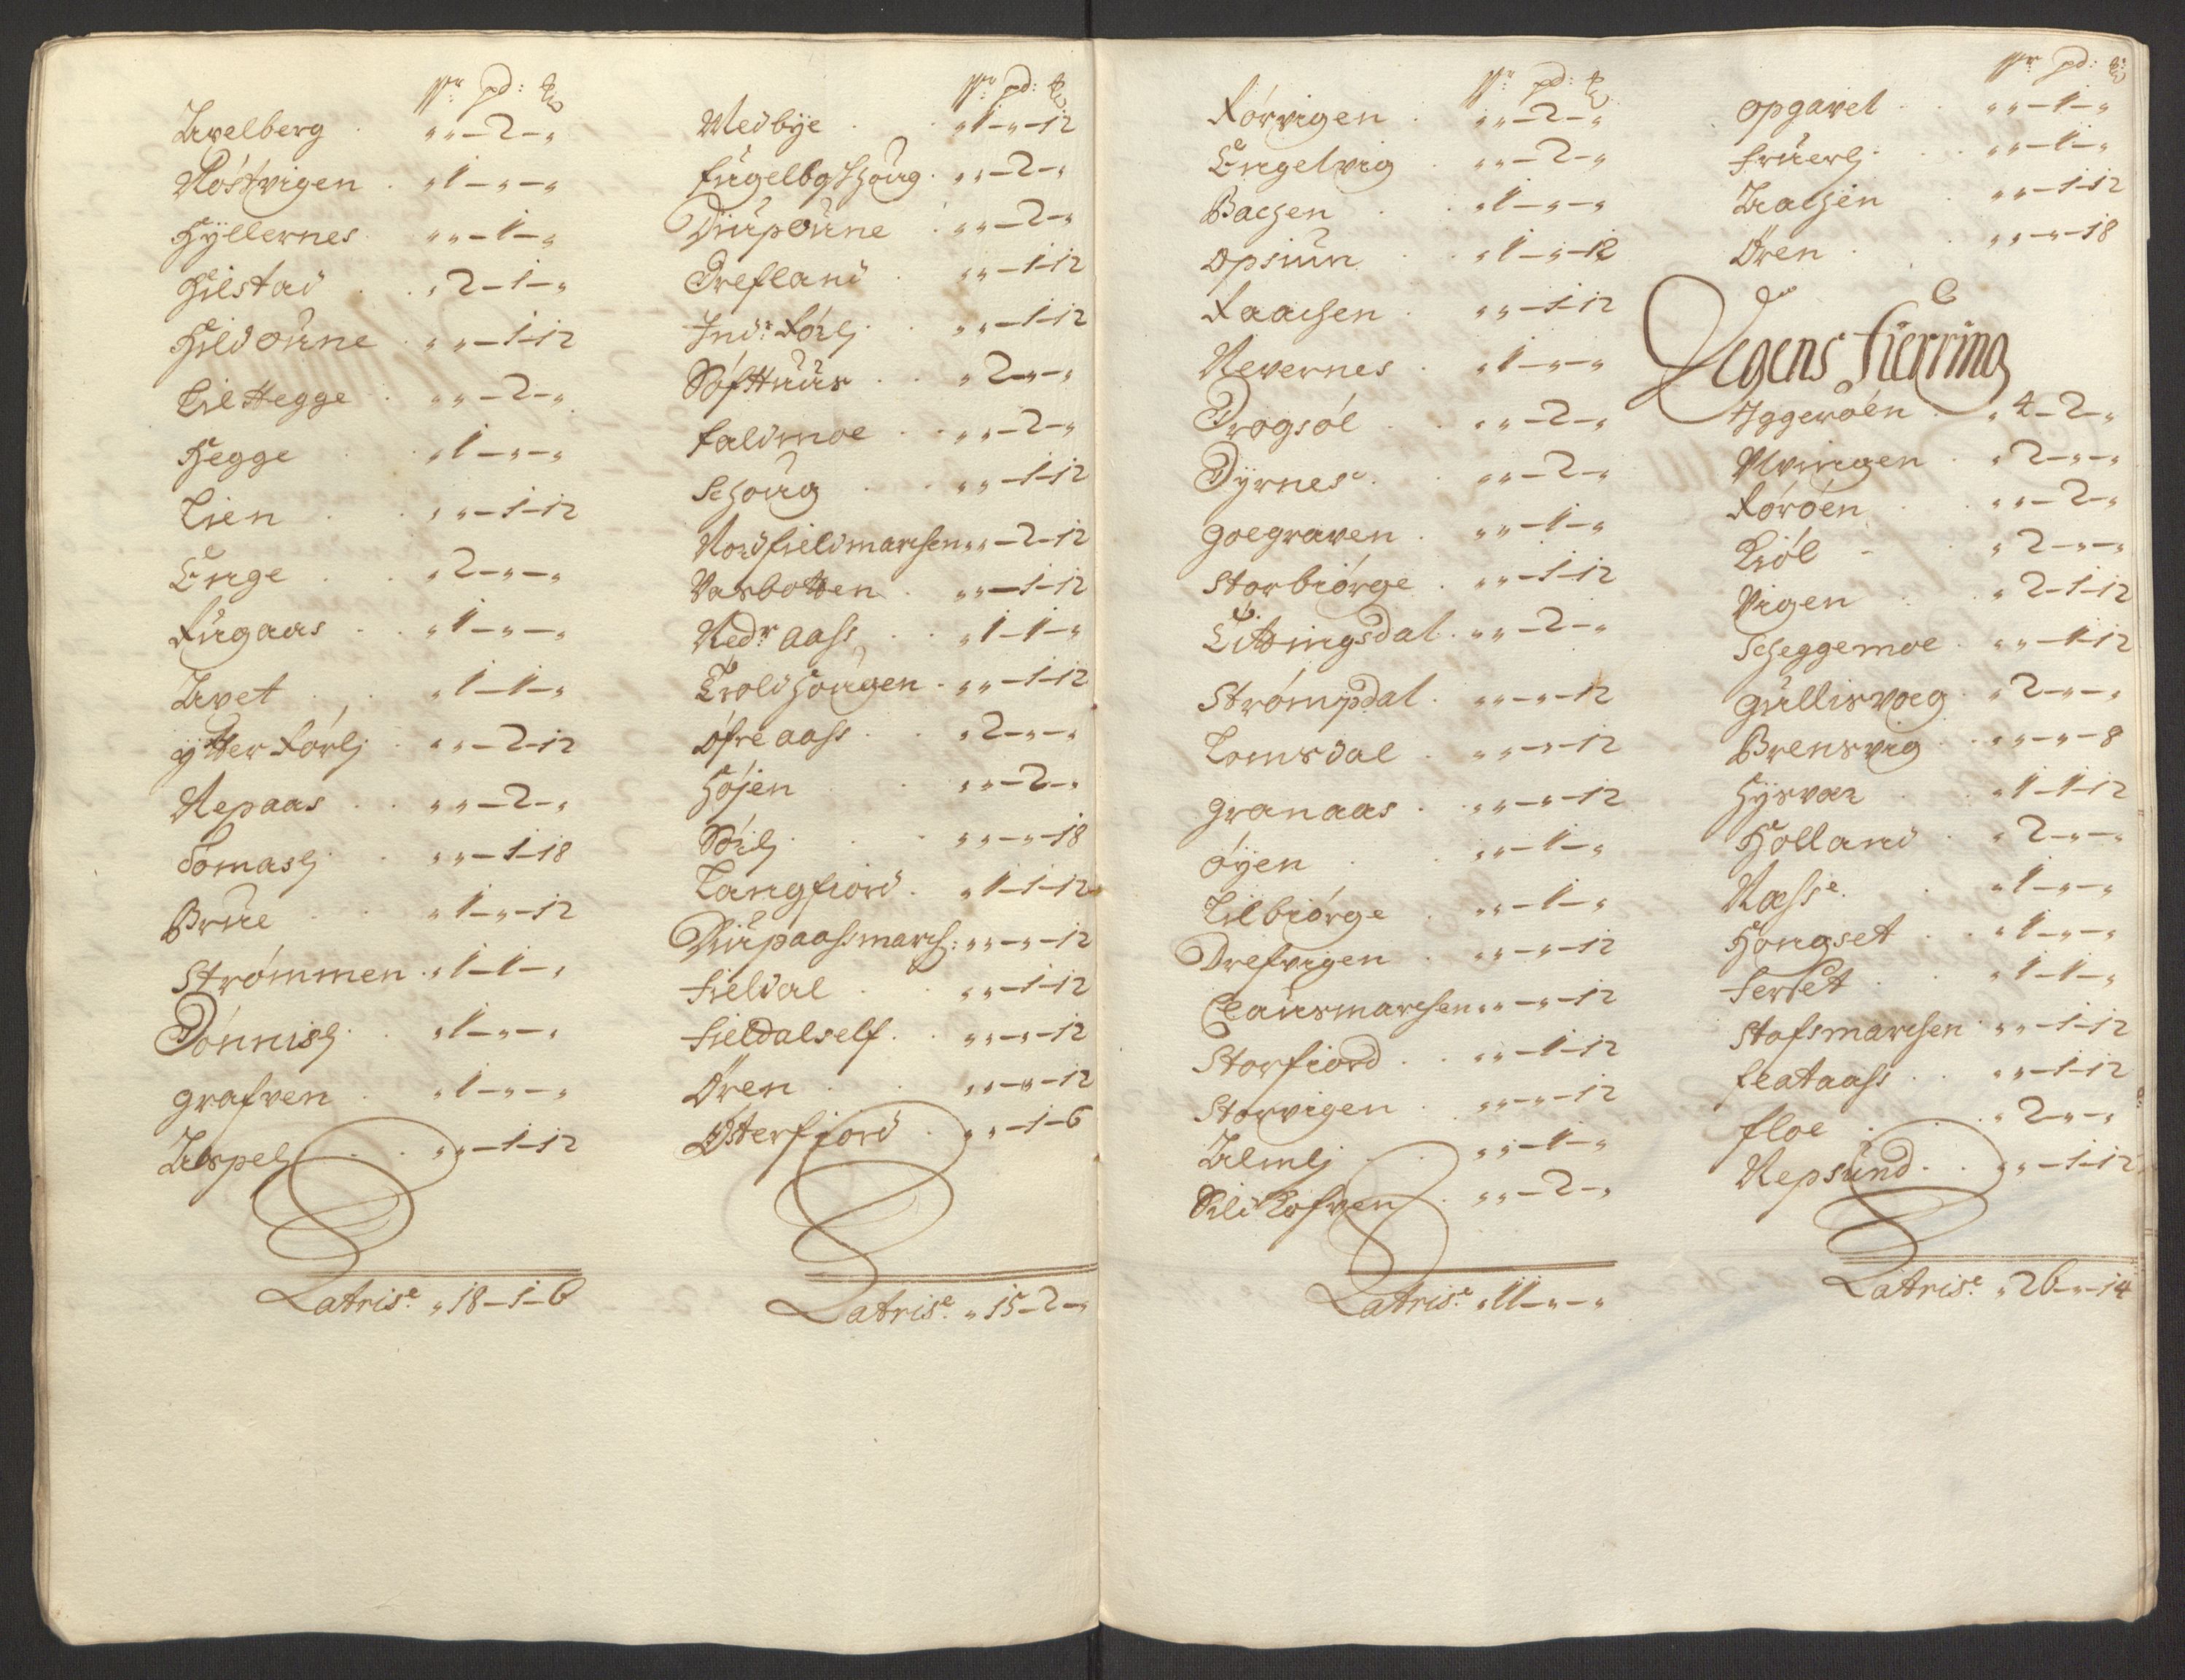 pd:
Hvelberg . „ „ – 2 – „
Röstvigen . „ 1 – „ – „
Hÿllernes „ „ – 1 – „
Hilstad . . „ 2 – 1 – „
Hildoune . „ „ – 1 – 12
Lil Hegge . „ „ – 2 – „
Hegge . „ 1 – „ – „
Lien . . „ „ – 1 – 12
Enge . . „ 2 – „ – „
Fugaas . . „ 1 – „ – „
Hvet . . „ 1 – 1 – „
ÿtter Förlj . „ „ – 2 – 12
Repaas . . „ „ – 2 – „
Tomaslj . „ „ – 1 – 18
Brue . . „ 1 – „ – 12
Strömmen . „ 1 – 1 – „
Dönnislj . „ 1 – „ – „
Grafven . „ 1 – „ – „
Hespelj . . „ „ – 1 – 12
Latris.e „ 18 – 1 – 6
pd:
Nedbÿe . . „ 1 – „ – 12
Fugelbgschoug . „ „ – 2 – „
Diupoune . „ „ – 2 – „
Trefland . „ „ – 1 – 12
Ind.r Förlj . „ „ – 1 – 12
Söfttuus . . „ 2 – „ – „
Faldmoe . . „ „ – 2 – „
Schoug . . „ „ – 1 – 12
Nordfieldmarchen „ „ – 2 – 12
Varbotten . „ „ – 1 – 12
Ned.r aass . . „ 1 – 1 – „
Troldhougen . „ „ – 1 – 12
öfre aass . . „ 2 – „ – „
Höjen . „ „ – 2 – „
Sörlj . . „ „ – „ – 18
Langfiord . „ 1 – 1 – 12
Diupaassmarch: „ „ – „ – 12
Fieldal . . „ „ – 1 – 12
Fieldalself . . „ „ – „ – 12
Ören . . „ „ – „ – 12
Otterfiord . „ „ – 1 – 6
Latris.e „ 15 – 2 – „
pd:
Förvigen . „ „ – 2 – „
Engelvig . „ „ – 2 – „
Bachen . . „ 1 – „ – „
Opsiun . . „ 1 – „ – 12
Raachen . „ „ – 1 – 12
Revernes . „ 1 – „ – „
Trogsöl . . „ „ – 2 – „
Dÿrnes . . „ „ – 2 – „
Goegraven . „ „ – 1 – „
Storbiörge . „ „ – 1 – 12
Eittingsdal . „ „ – 2 – „
Strömpdal . „ „ – „ – 12
Lomsdal . „ „ – „ – 12
Granaas . „ „ – „ – 12
öÿen . . „ „ – 1 – „
Lilbiörge . „ „ – 1 – „
Drefvigen . „ „ – „ – 12
Clausmarchen „ „ – „ – 12
Storfiord . . „ „ – 1 – 12
Storvigen . „ „ – „ – 12
Holmlj . . „ „ – 1 – „
Sildhofven . „ „ – 2 – „
Latris.e „ 11 – „ – „
pd:
Opgavel . . „ „ – 1 – „
Fruerlj . . „ „ – 1 – „
Haachen . „ „ – 1 – 12
Ören . . „ „ – „ – 18
Vegens Fierring
Ÿggeröen . „ 4 – 2 – „
Ulvingen . „ 2 – „ – „
Röröen . . „ „ – 2 – „
Kiöl – . „ 2 – „ – „
Vigen . . „ 2 – 1 – 12
Scheggemoe . „ „ – 1 – 12
Gullisvaeg . „ 2 – „ – „
Brensvig . „ „ – „ – 8
Hÿsvær . „ 1 – 1 – 12
Holland . „ 2 – „ – „
Rass.e . „ 1 – „ – „
Hongset . . „ 1 – „ – „
Ferset . . „ 1 – 1 – „
Stafsmarchen . „ „ – 1 – 12
Flataass . . „ „ – 1 – 12
Floe . . „ 2 – „ – „
Repsund . . „ „ – 1 – 12
Latris.e „ 26 – „ – 14